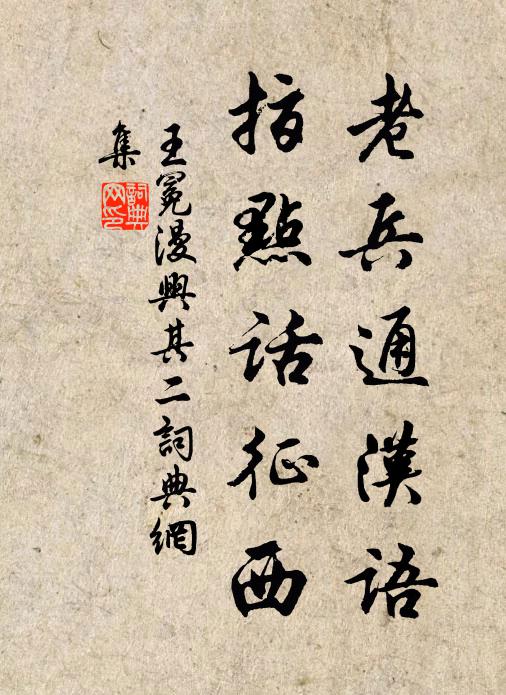 老兵通漢語
指點話征西
王冕漫興其二詞典網
集
詞典
网印